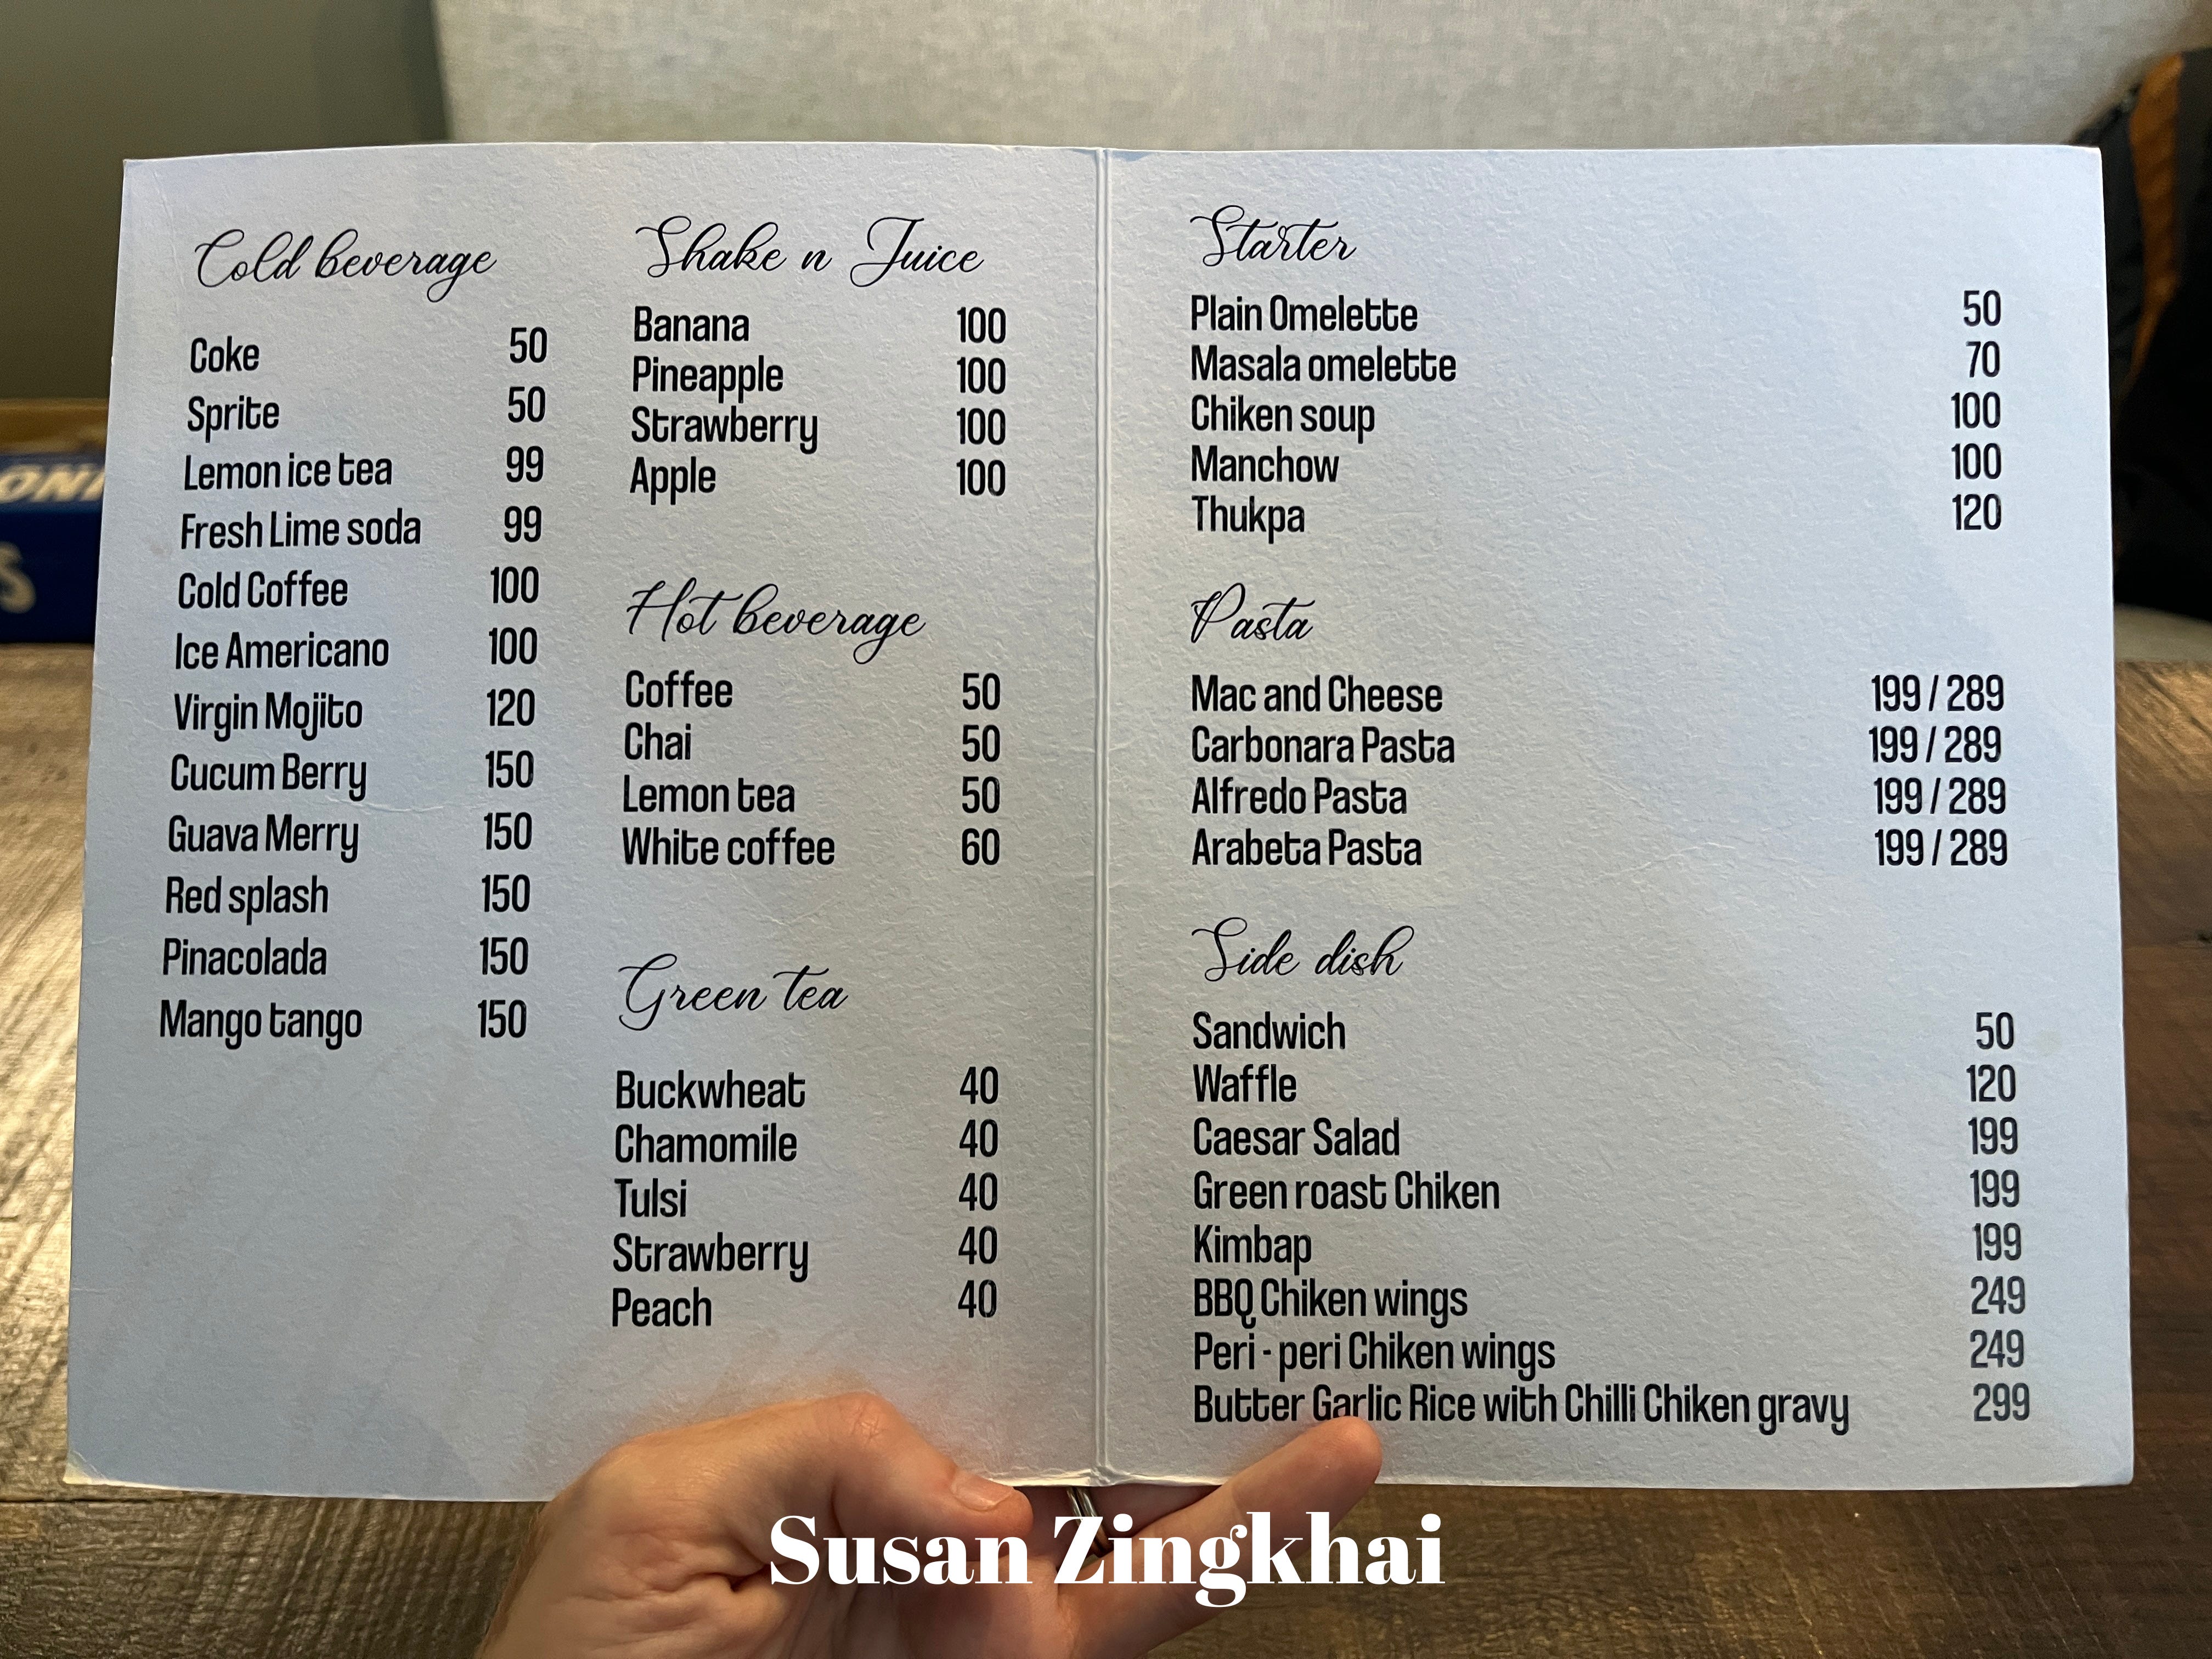 Cold beverage
Coke 50
Sprite 50
Lemon ice tea 99
Fresh Lime soda 99
Cold Coffee 100
Ice Americano 100
Virgin Mojito 120
Cucum Berry 150
Guava Merry 150
Red splash 150
Pinacolada 150
Mango tango 150
Shake n Juice
Banana 100
Pineapple 100
Strawberry 100
Apple 100
Hot beverage
Coffee 50
Chai 50
Lemon tea 50
White coffee 60
Green tea
Buckwheat 40
Chamomile 40
Tulsi 40
Strawberry 40
Peach 40
Starter
Plain Omelette 50
Masala omelette 70
Chiken soup 100
Manchow 100
Thukpa 120
Pasta
Mac and Cheese 199 / 289
Carbonara Pasta 199 / 289
Alfredo Pasta 199 / 289
Arabeta Pasta 199 / 289
Side dish
Sandwich 50
Waffle 120
Caesar Salad 199
Green roast Chiken 199
Kimbap 199
BBQ Chiken wings 249
Peri - peri Chiken wings 249
Butter Garlic Rice with Chilli Chiken gravy 299
Susan Zingkhai